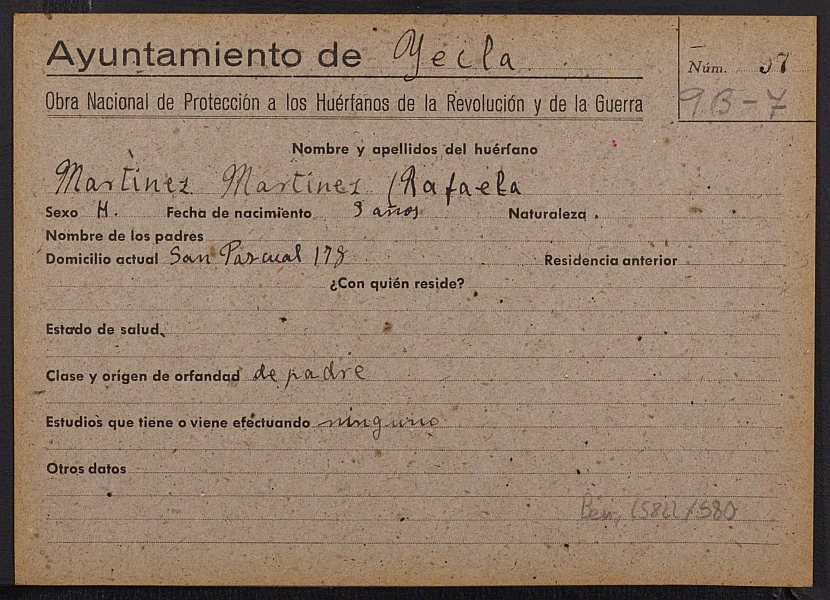 Ayuntamiento de Yecla
Núm. 57
9B-7
Obra Nacional de Protección a los Huérfanos de la Revolución y de la Guerra
Nombre y apellidos del huérfano
Martinez Martinez (Rafaela
Sexo H. Fecha de nacimiento 3 años Naturaleza
Nombre de los padres
Domicilio actual San Pascual 178 Residencia anterior
¿Con quién reside?
Estado de salud
Clase y origen de orfandad de padre
Estudios que tiene o viene efectuando ninguno
Otros datos